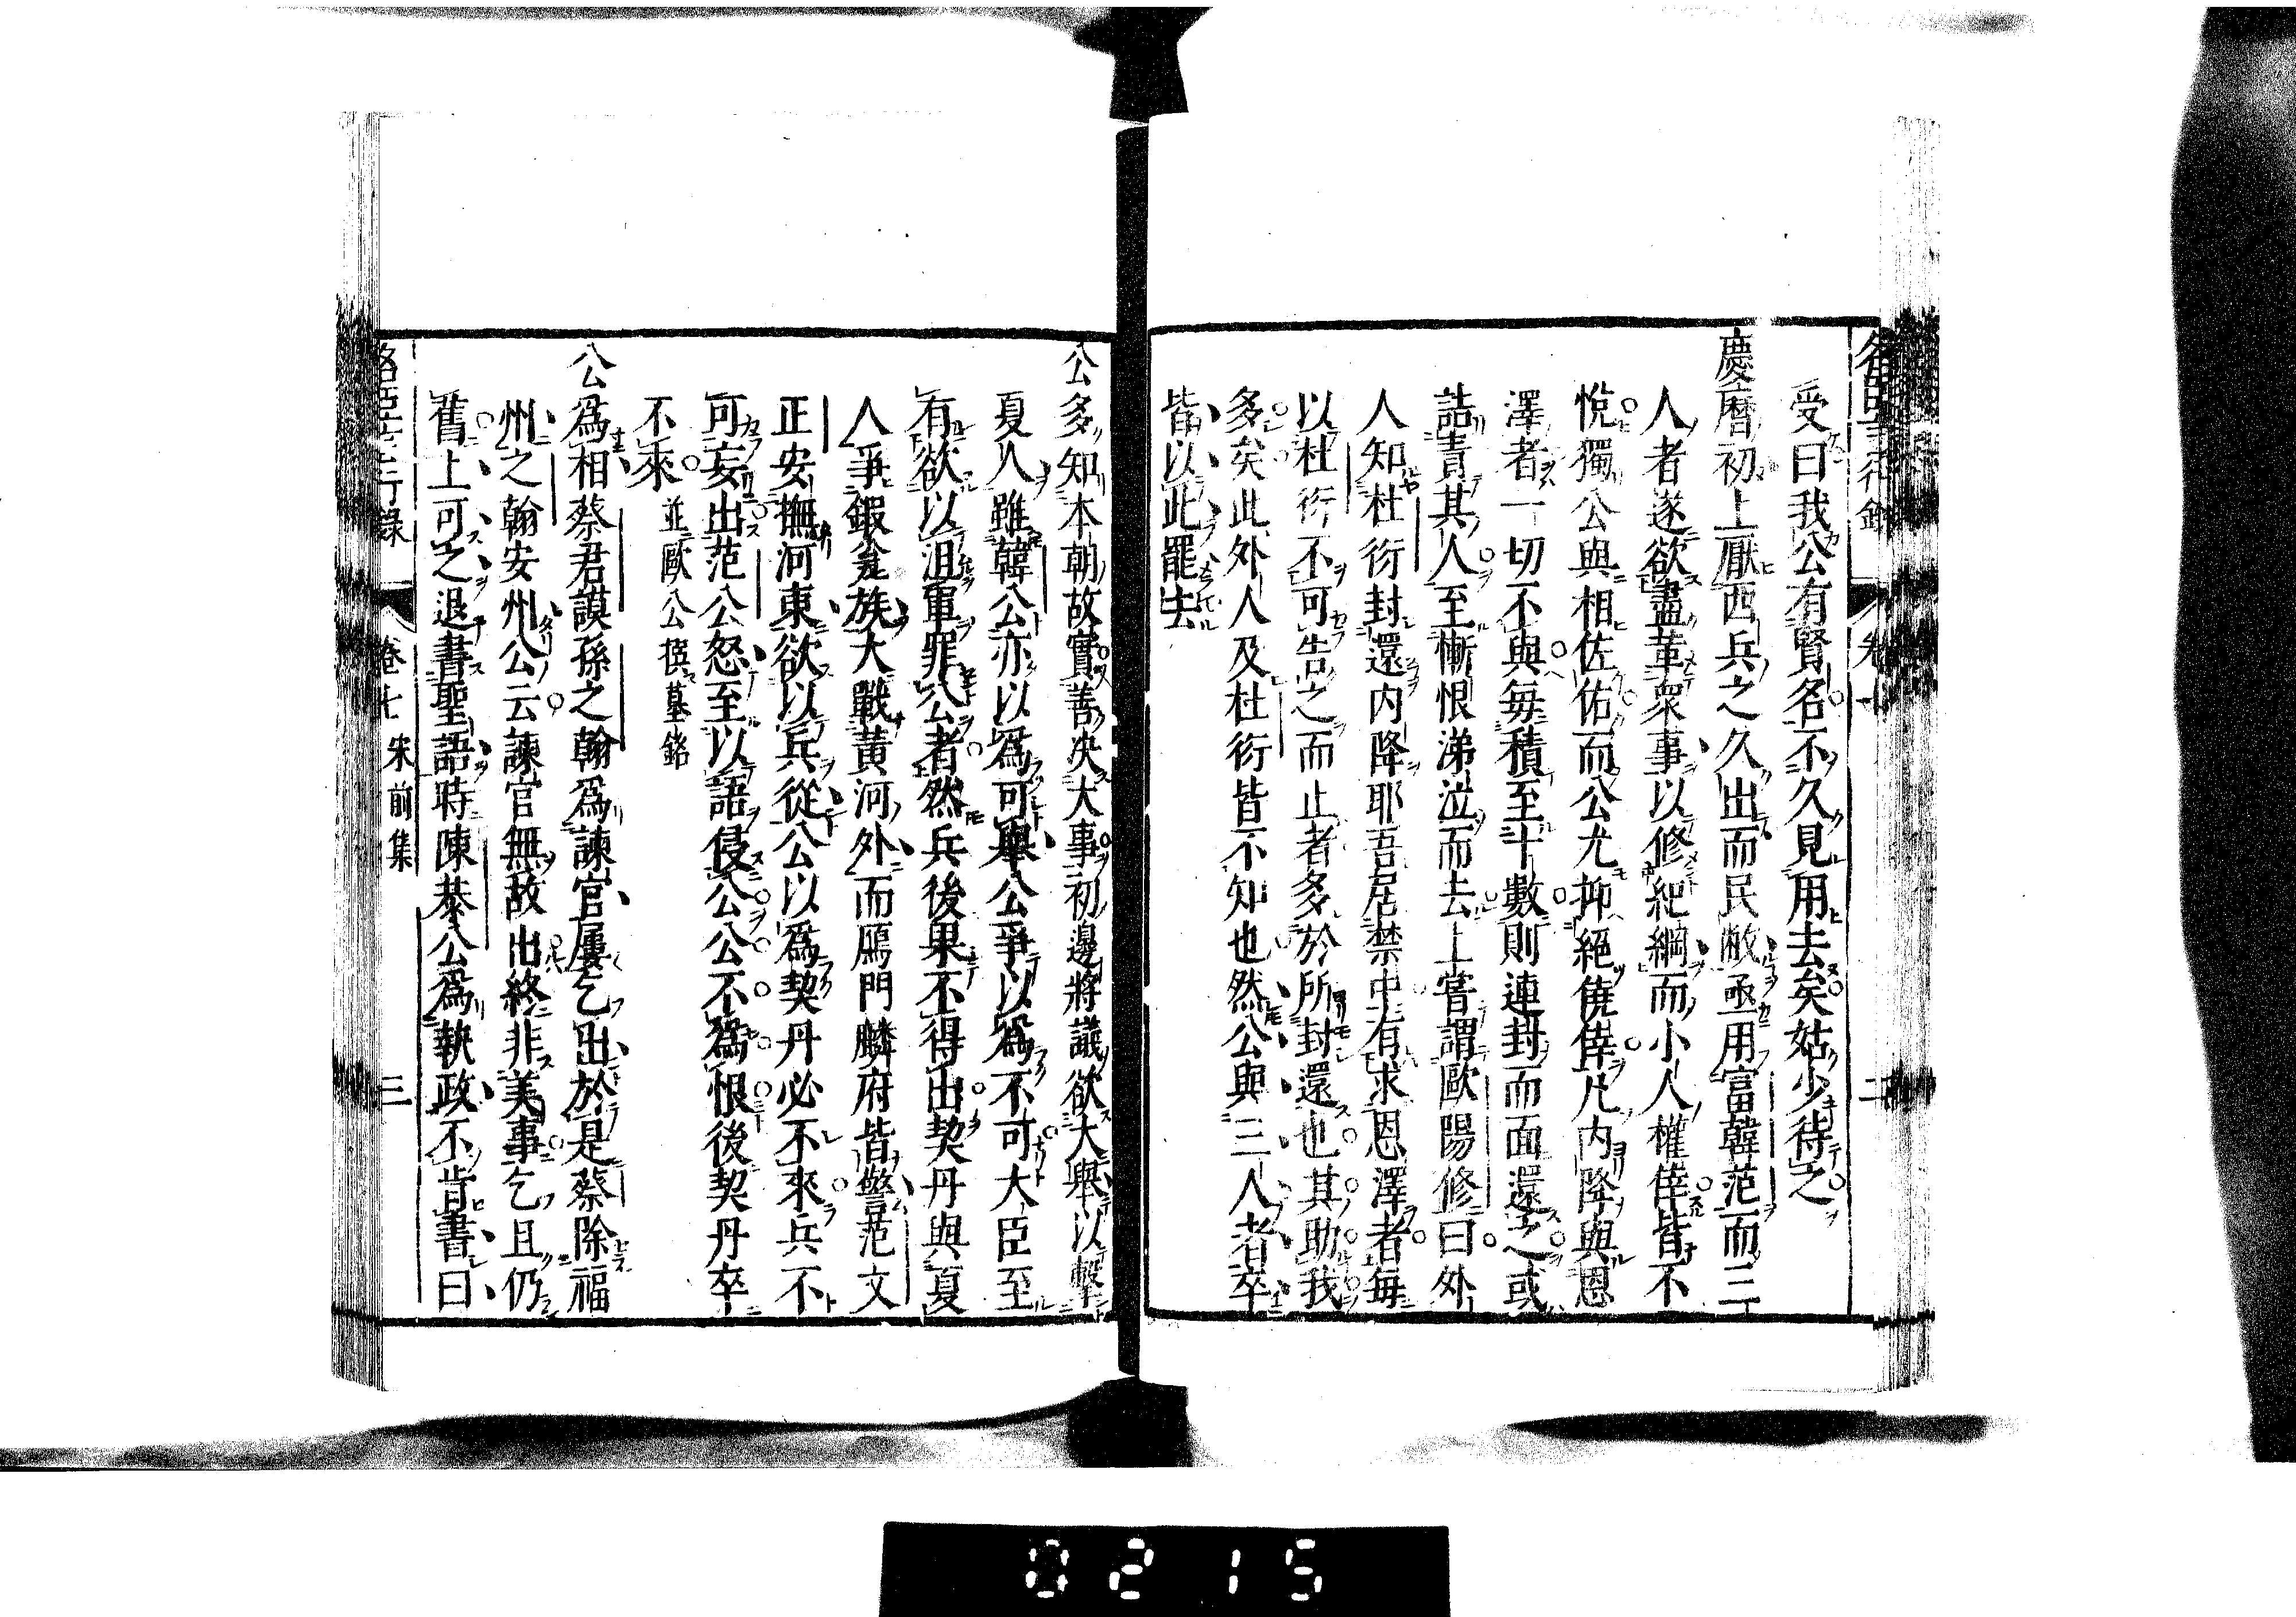 受曰我公有賢名不久見用去矣姑少待之
慶曆初上厭西兵之久出而民敝亟用富韓范而三
人者遂欲盡革衆事以修紀綱而小人權倖皆不
悅獨公與相佐佑而公尤抑絕僥倖凡内降與恩
澤者一切不與毎積至十數則連封而面還之或
詰責其人至慚恨涕泣而去上嘗謂歐陽修曰外
人知杜衍封還内降耶吾居禁中有求恩澤者毎
以杜衍不可告之而止者多於所封還也其助我
多矣此外人及杜衍皆不知也然公與三人者卒
皆以此罷去
公多知本朝故實善决大事初邊將議欲大舉以擊
夏人雖韓公亦以爲可舉公爭以爲不可大臣至
有欲以沮軍罪公者然兵後果不得出契丹與夏
人爭銀瓮族大戰黄河外而鴈門麟府皆警范文
正安撫河東欲以兵從公以爲契丹必不來兵不
可妄出范公怒至以語侵公公不爲恨後契丹卒
不來 並歐公撰墓銘
公爲相蔡君謨孫之翰爲諫官屢乞出於是蔡除福
州之翰安州公云諫官無故出終非美事乞且仍
舊上可之退書聖語時陳恭公爲執政不肯書曰
卷七 宋前集 三
0215